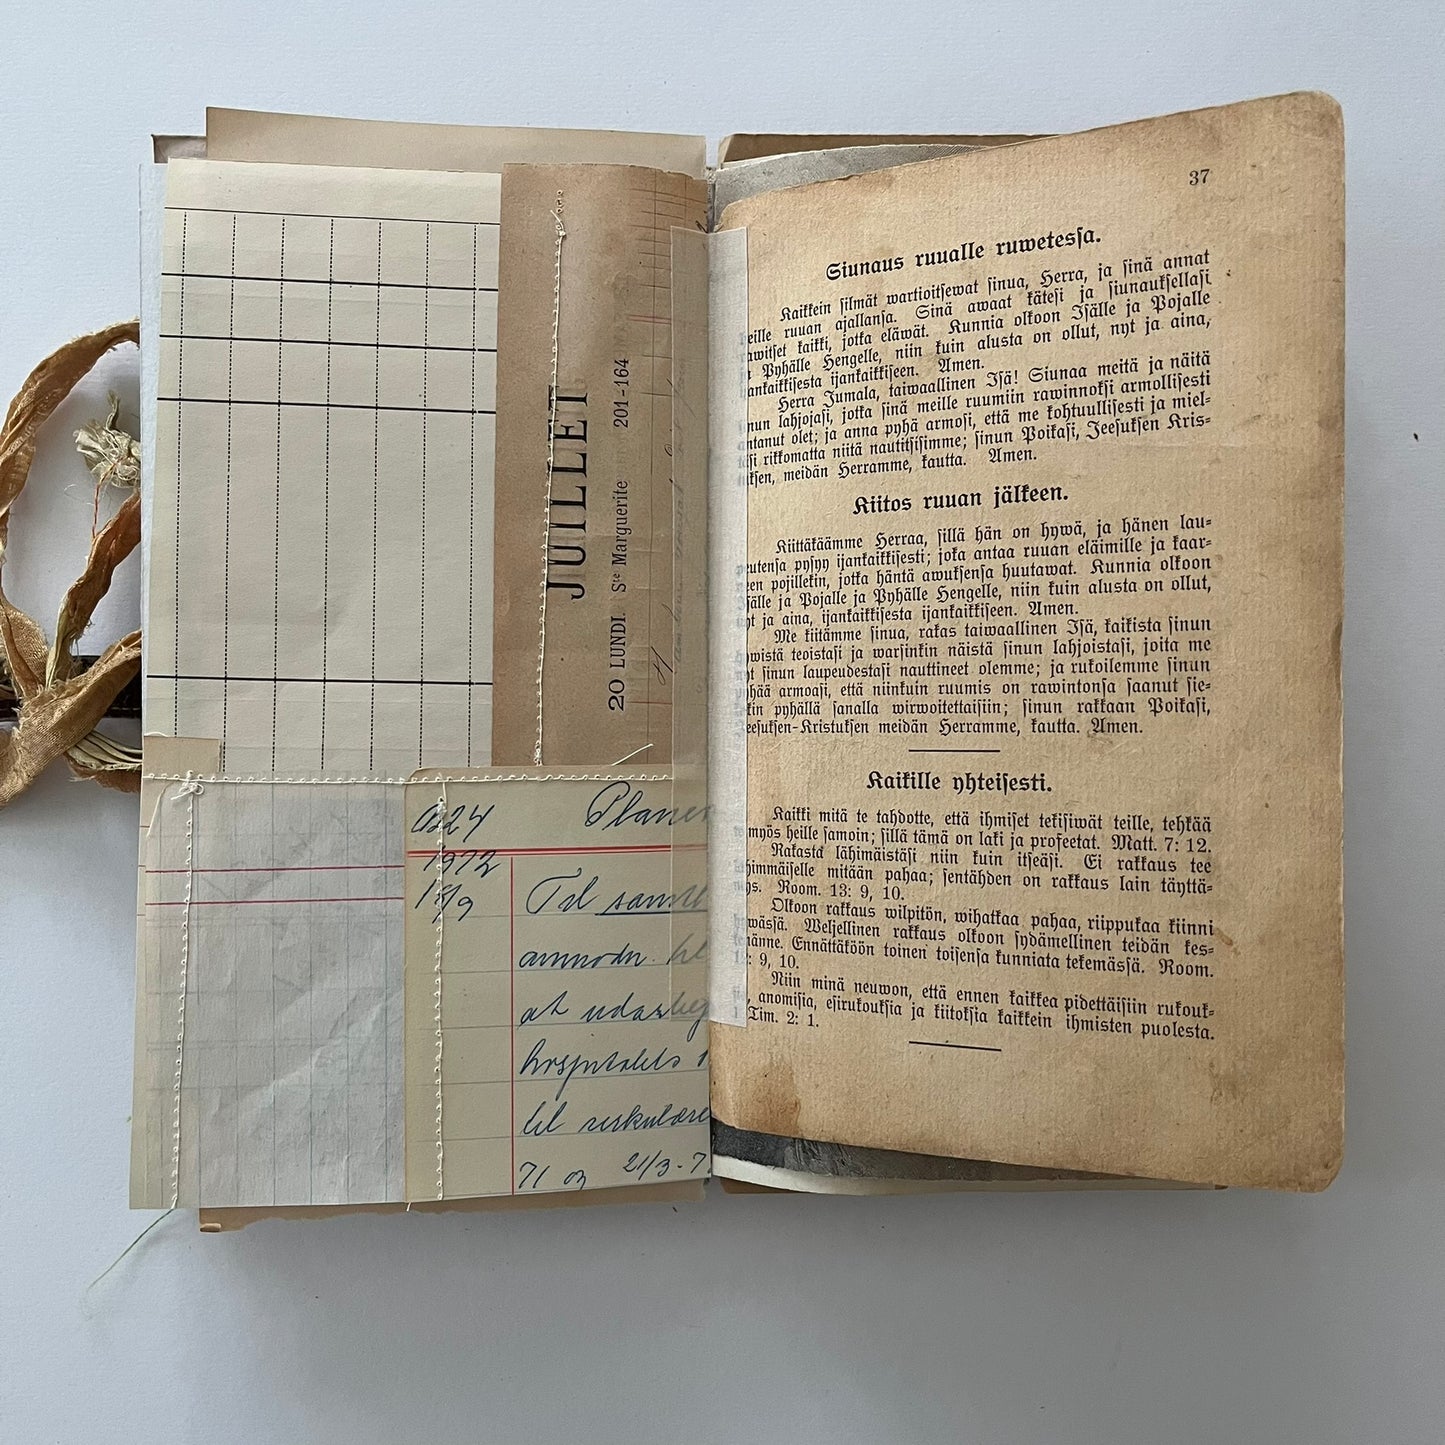 JUILLET
20 LUNDI. Ste Marguerite 201-164
1924 Planer
1972
Til samtl
at
hospitalets
til
71 og 21/3-7
37
Siunaus ruualle ruwetessa.
Kaikkein silmät wartioitsewat sinua, Herra, ja sinä annat
heille ruuan ajallansa. Sinä awaat kätesi ja siunauksellasi
rawitset kaikki, jotka eläwät. Kunnia olkoon Isälle ja Pojalle
Pyhälle Hengelle, niin kuin alusta on ollut, nyt ja aina,
iankaikkisesta ijankaikkiseen. Amen.
Herra Jumala, taiwaallinen Isä! Siunaa meitä ja näitä
sinun lahjojasi, jotka sinä meille ruumiin rawinnoksi armollisesti
antanut olet; ja anna pyhä armosi, että me kohtuullisesti ja miel-
rikkomatta niitä nautitsisimme; sinun Poikasi, Jeesuksen Kris-
tuksen, meidän Herramme, kautta. Amen.
Kiitos ruuan jälkeen.
Kiittäkäämme Herraa, sillä hän on hywä, ja hänen lau-
peutensa pysyy ijankaikkisesti; joka antaa ruuan eläimille ja kaar-
neen pojillekin, jotka häntä awuksensa huutawat. Kunnia olkoon
Isälle ja Pojalle ja Pyhälle Hengelle, niin kuin alusta on ollut,
nyt ja aina, ijankaikkisesta ijankaikkiseen. Amen.
Me kiitämme sinua, rakas taiwaallinen Isä, kaikista sinun
hywistä teoistasi ja warsinkin näistä sinun lahjoistasi, joita me
nyt sinun laupeudestasi nauttineet olemme; ja rukoilemme sinun
pyhää armoasi, että niinkuin ruumis on rawintonsa saanut sie-
lukin pyhällä sanalla wirwoitettaisiin; sinun rakkaan Poikasi,
Jeesuksen-Kristuksen meidän Herramme, kautta. Amen.
Kaikille yhteisesti.
Kaikki mitä te tahdotte, että ihmiset tekisiwät teille, tehkää
myös heille samoin; sillä tämä on laki ja profeetat. Matt. 7: 12.
Rakasta lähimäistäsi niin kuin itseäsi. Ei rakkaus tee
lähimmäiselle mitään pahaa; sentähden on rakkaus lain täyttä-
mys. Room. 13: 9, 10.
Olkoon rakkaus wilpitön, wihatkaa pahaa, riippukaa kiinni
hywässä. Weljellinen rakkaus olkoon sydämellinen teidän kes-
kenänne. Ennättäköön toinen toisensa kunniata tekemässä. Room.
12: 9, 10.
Niin minä neuwon, että ennen kaikkea pidettäisiin rukouk-
sia, anomisia, esirukouksia ja kiitoksia kaikkein ihmisten puolesta.
1 Tim. 2: 1.